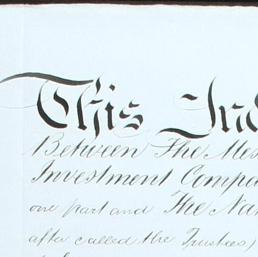 This Ind
Between The Mes
Investment Compa
one part and The Na
after called the Trustees)